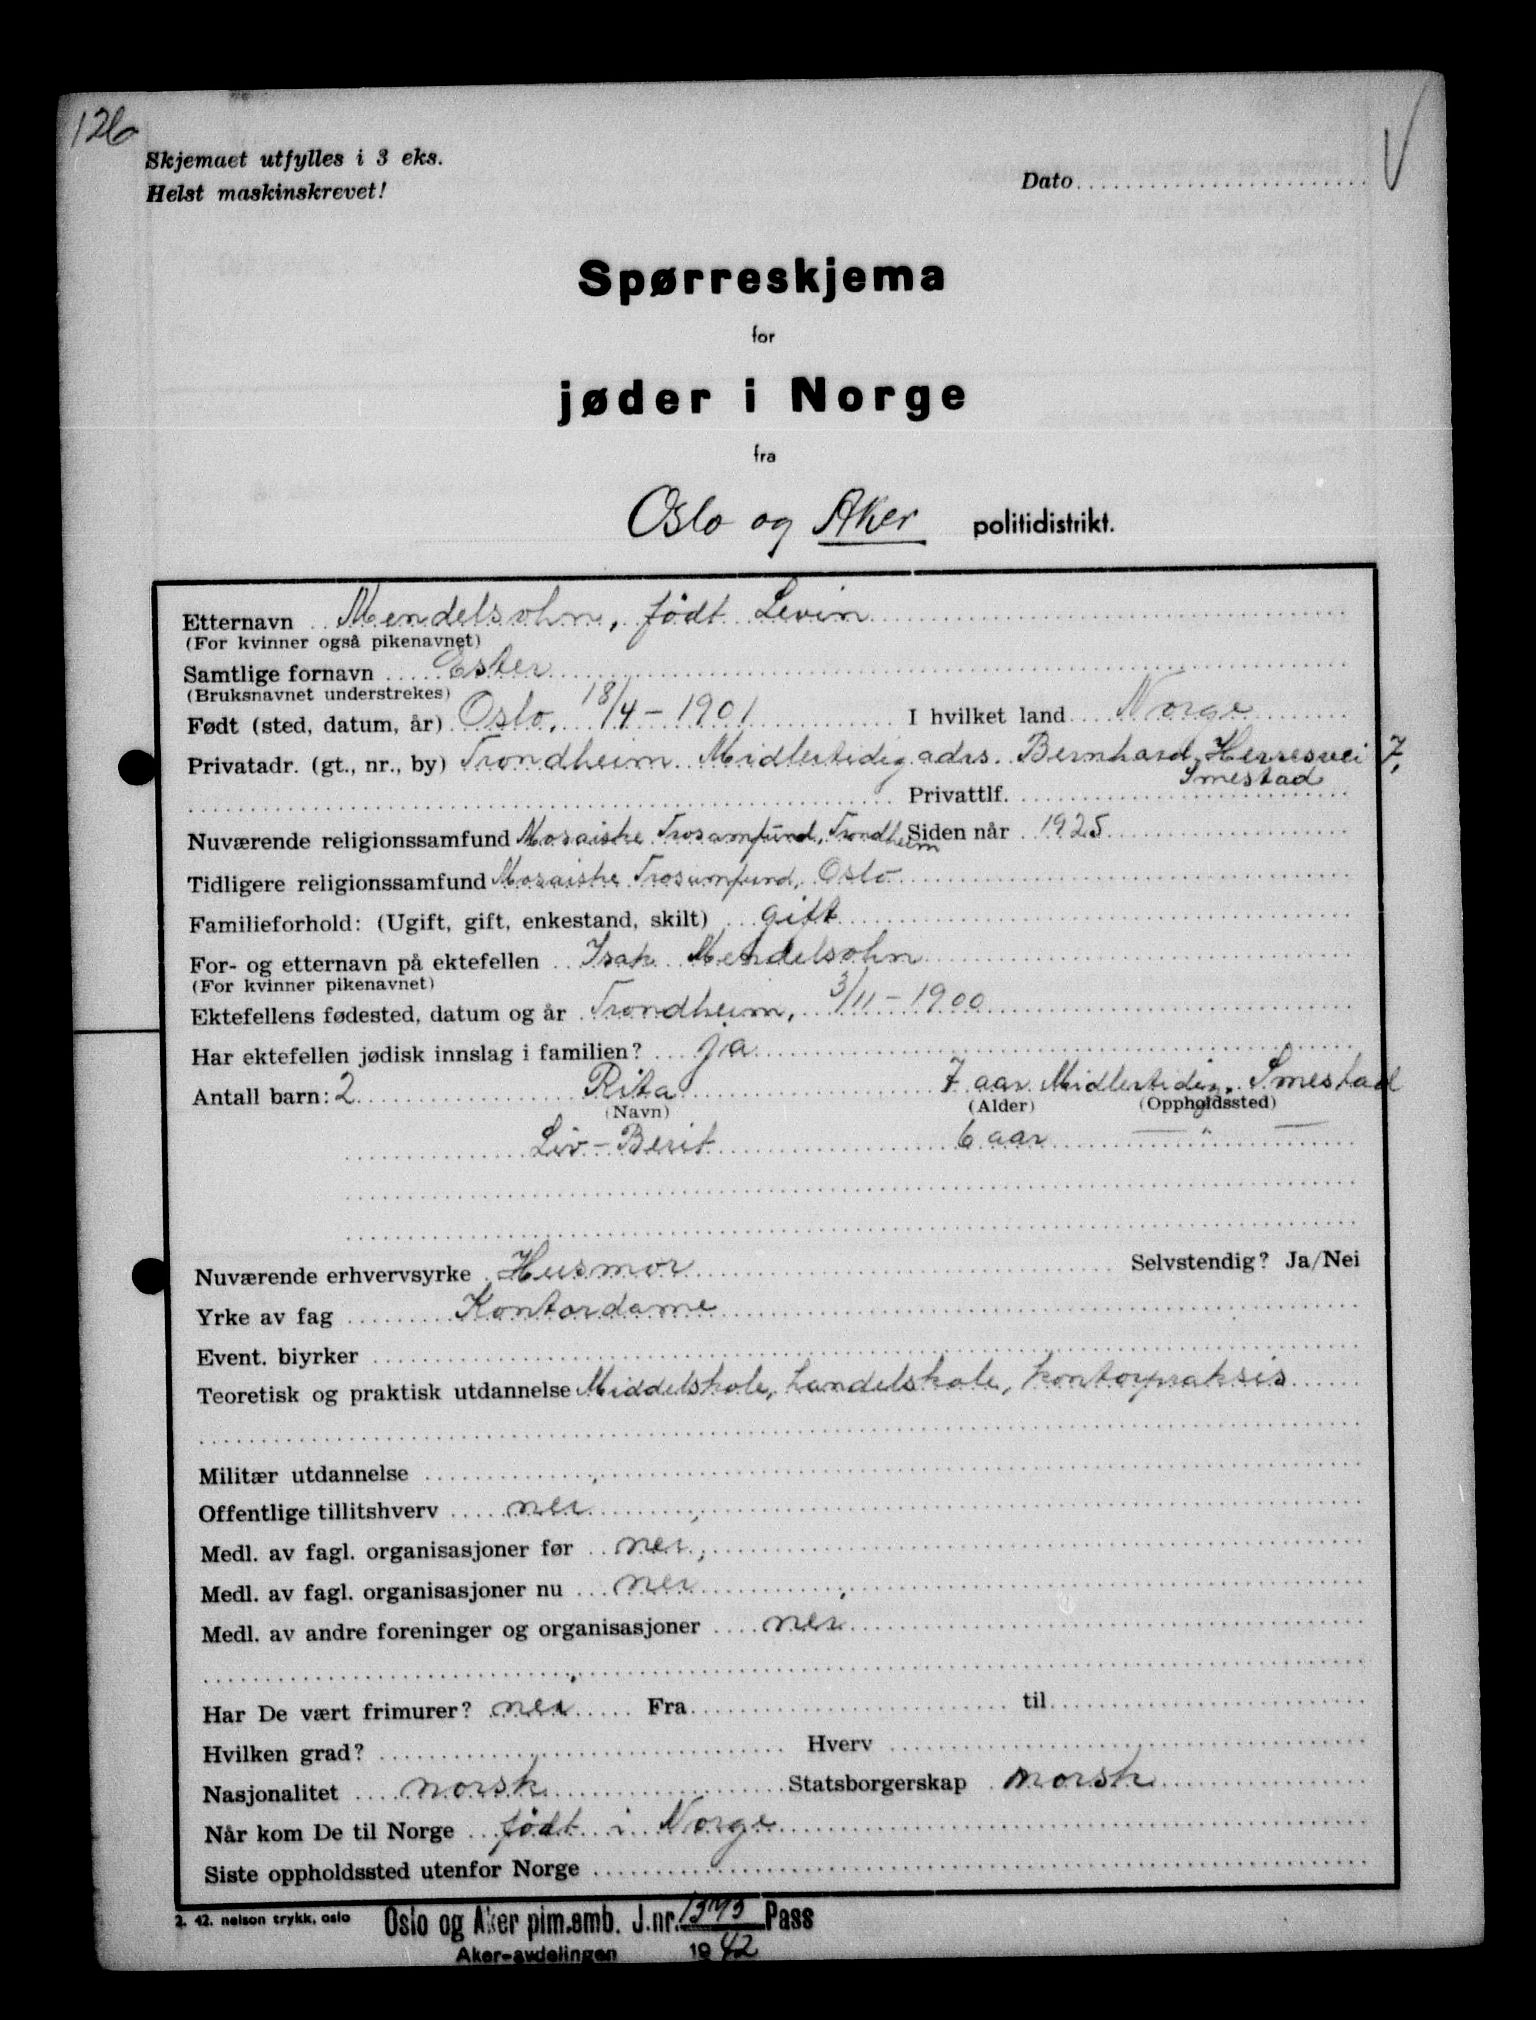 126
Skjemaet utfylles i 3 eks.
Helst maskinskrevet!
Dato
Spørreskjema
for
jøder i Norge
fra
Oslo og Aker politidistrikt.
Etternavn Mendelsohn, født Levin
(For kvinner også pikenavnet)
Samtlige fornavn Ester
(Bruksnavnet understrekes)
Født (sted, datum, år) Oslo, 18/4 - 1901 I hvilket land Norge
Privatadr. (gt., nr., by) Trondheim. Midlertidig adrs. Bernhard Herresvei 7,
Smestad
Privattlf.
Nuværende religionssamfund Mosaiske Trosamfund, Trondheim Siden når 1925
Tidligere religionssamfund Mosaiske Trosamfund, Oslo
Familieforhold: (Ugift, gift, enkestand, skilt) gift
For- og etternavn på ektefellen Isak Mendelsohn
(For kvinner pikenavnet)
Ektefellens fødested, datum og år Trondheim, 3/11 - 1900
Har ektefellen jødisk innslag i familien? ja
Antall barn: 2 Rita 7 aar Midlertidig, Smestad
(Navn) (Alder) (Oppholdssted)
Liv - Berit 6 aar — " —
Nuværende erhvervsyrke Husmor Selvstendig? Ja/Nei
Yrke av fag Kontordame
Event. biyrker
Teoretisk og praktisk utdannelse Middelskole, handelskole, kontorpraksis
Militær utdannelse
Offentlige tillitshverv nei
Medl. av fagl. organisasjoner før nei,
Medl. av fagl. organisasjoner nu nei
Medl. av andre foreninger og organisasjoner nei
Har De vært frimurer? nei Fra til
Hvilken grad? Hverv
Nasjonalitet norsk Statsborgerskap norsk
Når kom De til Norge født i Norge
Siste oppholdssted utenfor Norge
2. 42. nelson trykk, oslo
Oslo og Aker pim.amb. J.nr. Pass
Aker-avdelingen 1942